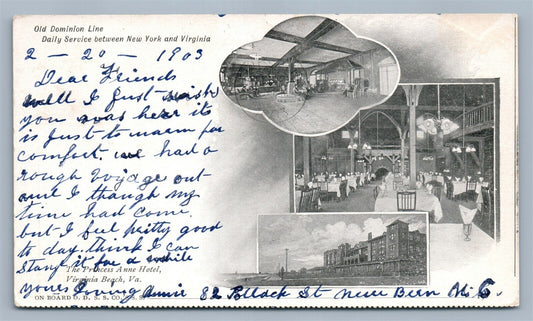 Old Dominion Line
Daily Service between New York and Virginia
2 - 20 - 1903
Dear Friends
well I just wish
you was hear its
is just to warm for
comfort. we had a
rough voyage out
and I though my
time had come.
but I feel pretty good
to day. think I can
stany it for a while
The Princess Anne Hotel,
Virginia Beach, Va.
yours loving Annie 82 Pollock St New Bern N. C
ON BOARD O. D. S. S. CO.